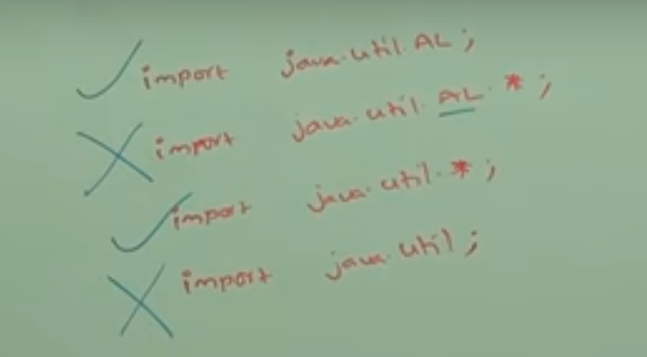 import java.util.AL;
import java.util.AL.*;
import java.util.*;
import java.util;